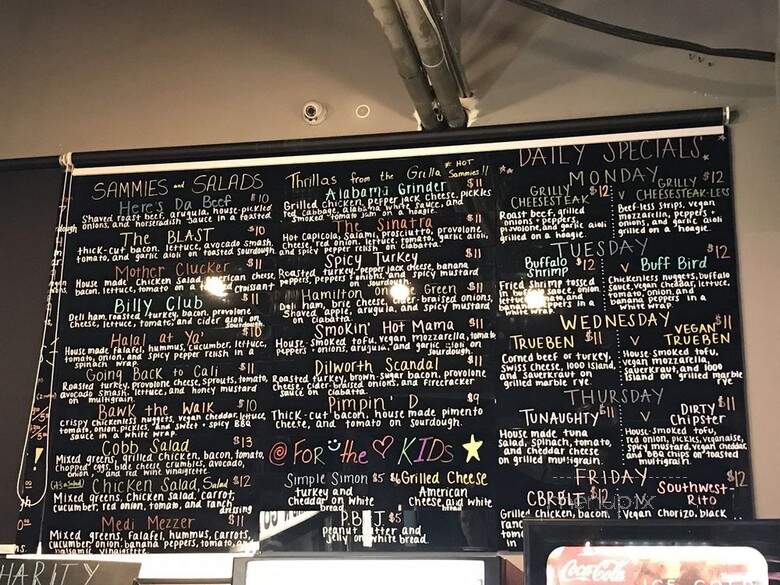 SAMMIES and SALADS
Here's Da Beef $10
Shaved roast beef, arugula, house-pickled
onions, and horseradish sauce in a toasted
The BLAST $10
thick-cut bacon, lettuce, avocado smash,
tomato, and garlic aioli on toasted sourdough.
Mother Clucker $11
House made chicken salad, american cheese,
bacon, lettuce, tomato on a croissant
Billy Club $11
Deli ham, roasted turkey, bacon, provolone
cheese, lettuce, tomato, and cider aioli on
sourdough
Halal at Ya! $10
House made falafel, hummus, cucumber, lettuce,
tomato, onion, and spicy pepper relish in a
spinach wrap
Going Back to Cali $11
Roasted turkey, provolone cheese, sprouts, tomato,
avocado smash, lettuce, and honey mustard
on multigrain.
Bawk the Walk $10
crispy chickenless nuggets, vegan cheddar, lettuce,
tomato, onion, pickles, and sweet + spicy BBQ
sauce in a white wrap.
Cobb Salad $13
Mixed greens, grilled chicken, bacon, tomato,
chopped eggs, blue cheese crumbles, avocado,
onion, and red wine vinaigrette
Chicken Salad, Salad $12
Mixed greens, chicken salad, carrot,
cucumber, red onion, tomato, and ranch
dressing
Medi Mezzer $11
Mixed greens, falafel, hummus, carrots,
cucumber, onion, banana peppers, tomato,
balsamic vinaigrette
Thrillas from the Grilla * HOT Sammies!!
Alabama Grinder $11
Grilled chicken, pepper jack cheese, pickles
red cabbage, alabama white sauce, and
smoked tomato jam on a hoagie.
The Sinatra $11
Hot capicola, salami, prosciutto, provolone
cheese, red onion, lettuce, tomato, garlic aioli,
and spicy pepper relish on ciabatta.
Spicy Turkey $11
Roasted turkey, pepper jack cheese, banana
peppers, peppers + onions, and spicy mustard
on sourdough.
Hamilton Green $11
Deli ham, brie cheese, cider-braised onions,
shaved apple, arugula, and spicy mustard
on ciabatta.
Smokin' Hot Mama $11
House-smoked tofu, vegan mozzarella, tomato
peppers + onions, arugula, and garlic aioli on
sourdough.
Dilworth Scandal $11
Roasted turkey, brown-sugar bacon, provolone
cheese, cider-braised onions, and firecracker
sauce on ciabatta.
Pimpin' D $9
Thick-cut bacon, house made pimento
cheese, and tomato on sourdough.
@ FOR the KIDS
Simple Simon $5
turkey and
cheddar on white
bread
$6 Grilled Cheese
American
cheese and white
bread
P.B. + J $5
peanut butter and
jelly on white bread.
DAILY SPECIALS
MONDAY
GRILLY $12
CHEESESTEAK
Roast beef, grilled
onions + peppers,
provolone, and garlic aioli
grilled on a hoagie.
V GRILLY $12
CHEESESTEAK-LESS
Beef-less strips, vegan
mozzarella, peppers +
onions, and garlic aioli
grilled on a hoagie.
TUESDAY
Buffalo $12
Shrimp
Fried shrimp tossed
V Buff Bird $12
Chickenless nuggets, buffalo
sauce, vegan cheddar, lettuce,
tomato, onion, and
banana peppers in a
white wrap.
WEDNESDAY
TRUEBEN $11
Corned beef or turkey,
swiss cheese, 1000 island,
and sauerkraut on
grilled marble rye
V VEGAN $11
TRUEBEN
House-smoked tofu,
vegan mozzarella,
sauerkraut, and 1000
island on grilled marble
rye
THURSDAY
TUNAUGHTY $11
House made tuna
salad, spinach, tomato,
and cheddar cheese
on grilled multigrain.
V DIRTY $11
Chipster
House-smoked tofu,
red onion, pickles, veganaise,
spicy mustard, vegan cheddar
and BBQ chips on toasted
multigrain.
FRIDAY
CBRBLT $12
Grilled chicken, bacon,
Southwest $12
Rito
Vegan chorizo, black
CHARITY
Coca-Cola